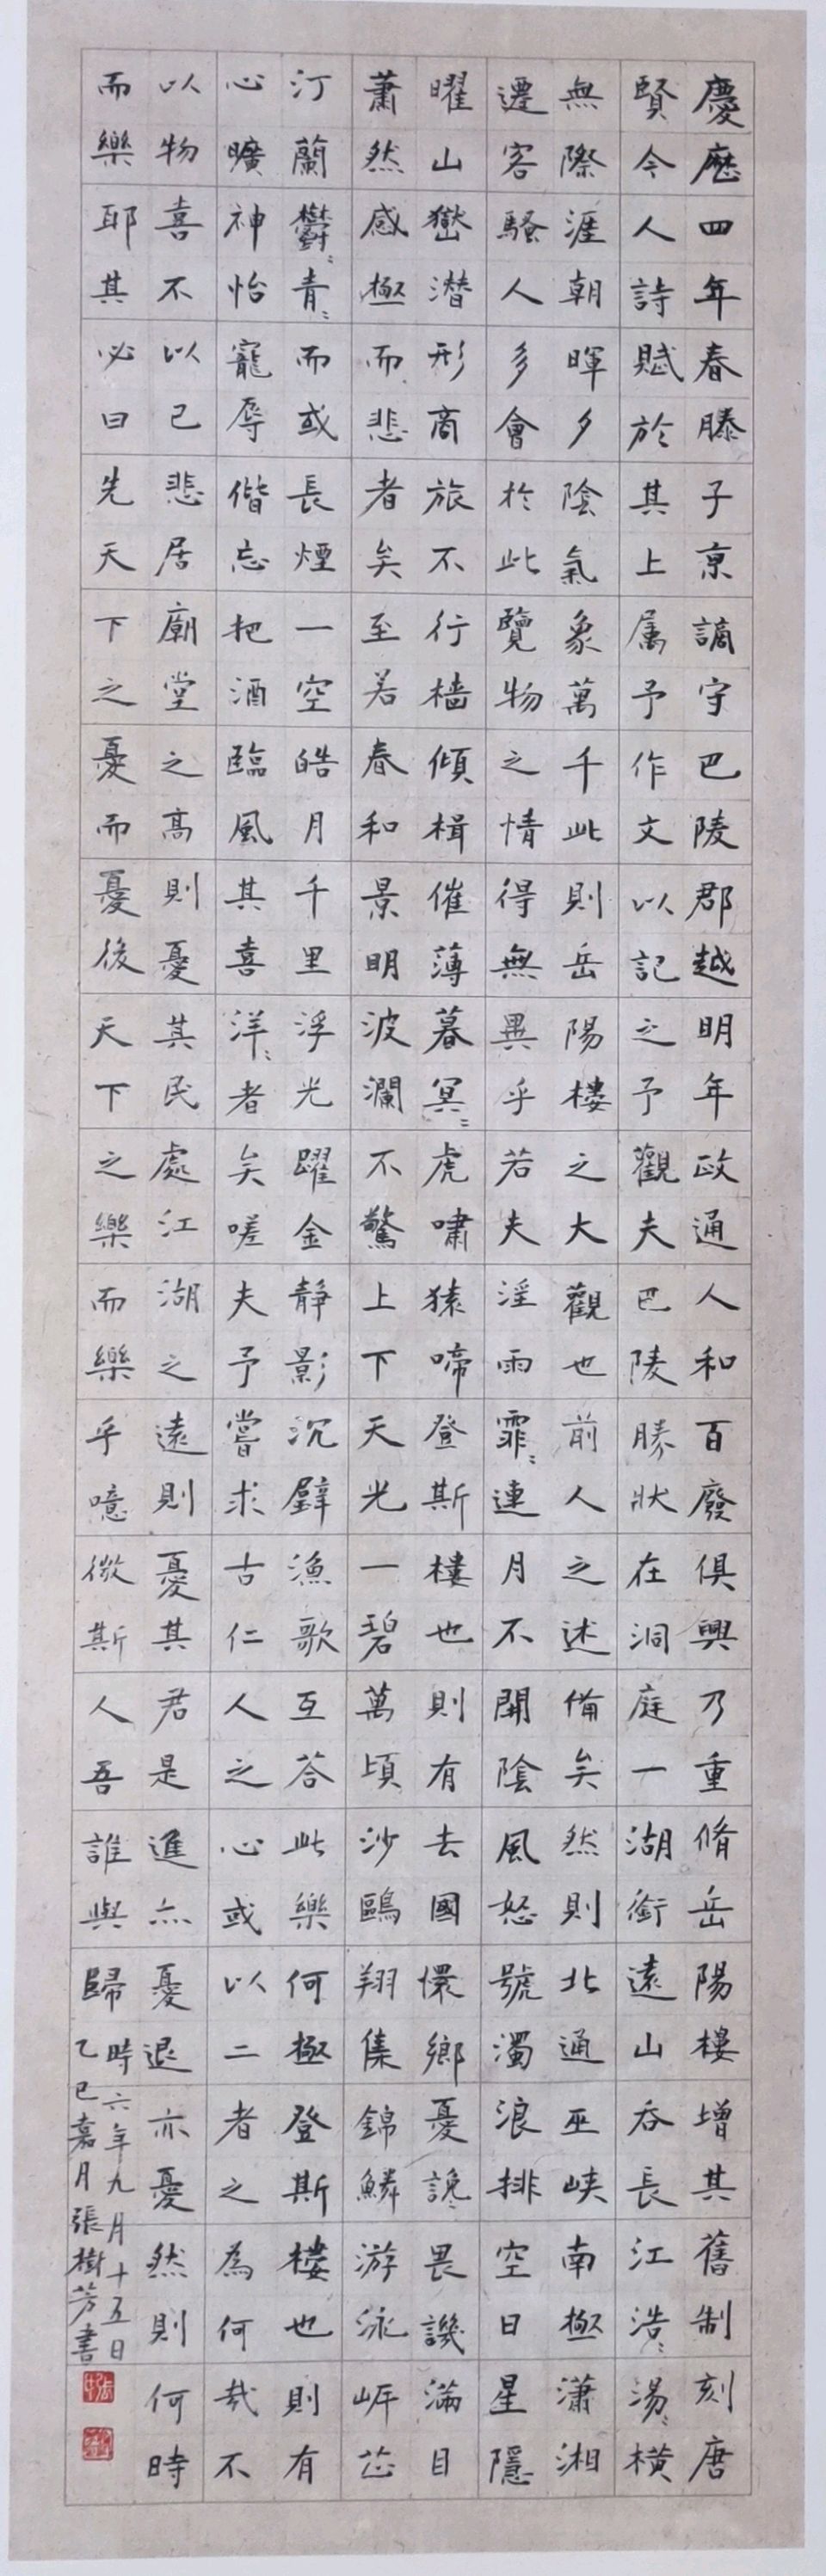 慶歷四年春滕子京謫守巴陵郡越明年政通人和百廢俱興乃重脩岳陽樓增其舊制刻唐
賢今人詩賦於其上属予作文以記之予觀夫巴陵勝狀在洞庭一湖銜遠山吞長江浩〻湯〻橫
無際涯朝暉夕陰氣象萬千此則岳陽樓之大觀也前人之述備矣然則北通巫峽南極瀟湘
遷客騷人多會於此覽物之情得無異乎若夫淫雨霏〻連月不開陰風怒號濁浪排空日星隱
曜山嶽潛形商旅不行檣傾楫催薄暮冥〻虎嘯猿啼登斯樓也則有去國懷鄉憂讒〻畏譏滿目
蕭然感極而悲者矣至若春和景明波瀾不驚上下天光一碧萬頃沙鷗翔集錦鱗游泳岸芷
汀蘭鬱〻青〻而或長煙一空皓月千里浮光躍金靜影沉璧漁歌互答此樂何極登斯樓也則有
心曠神怡寵辱偕忘把酒臨風其喜洋〻者矣嗟夫予嘗求古仁人之心或以二者之為何哉不
以物喜不以己悲居廟堂之高則憂其民處江湖之遠則憂其君是進亦憂退亦憂然則何時
而樂耶其必曰先天下之憂而憂後天下之樂而樂乎噫微斯人吾誰與歸
時六年九月十五日
乙巳嘉月張樹芳書